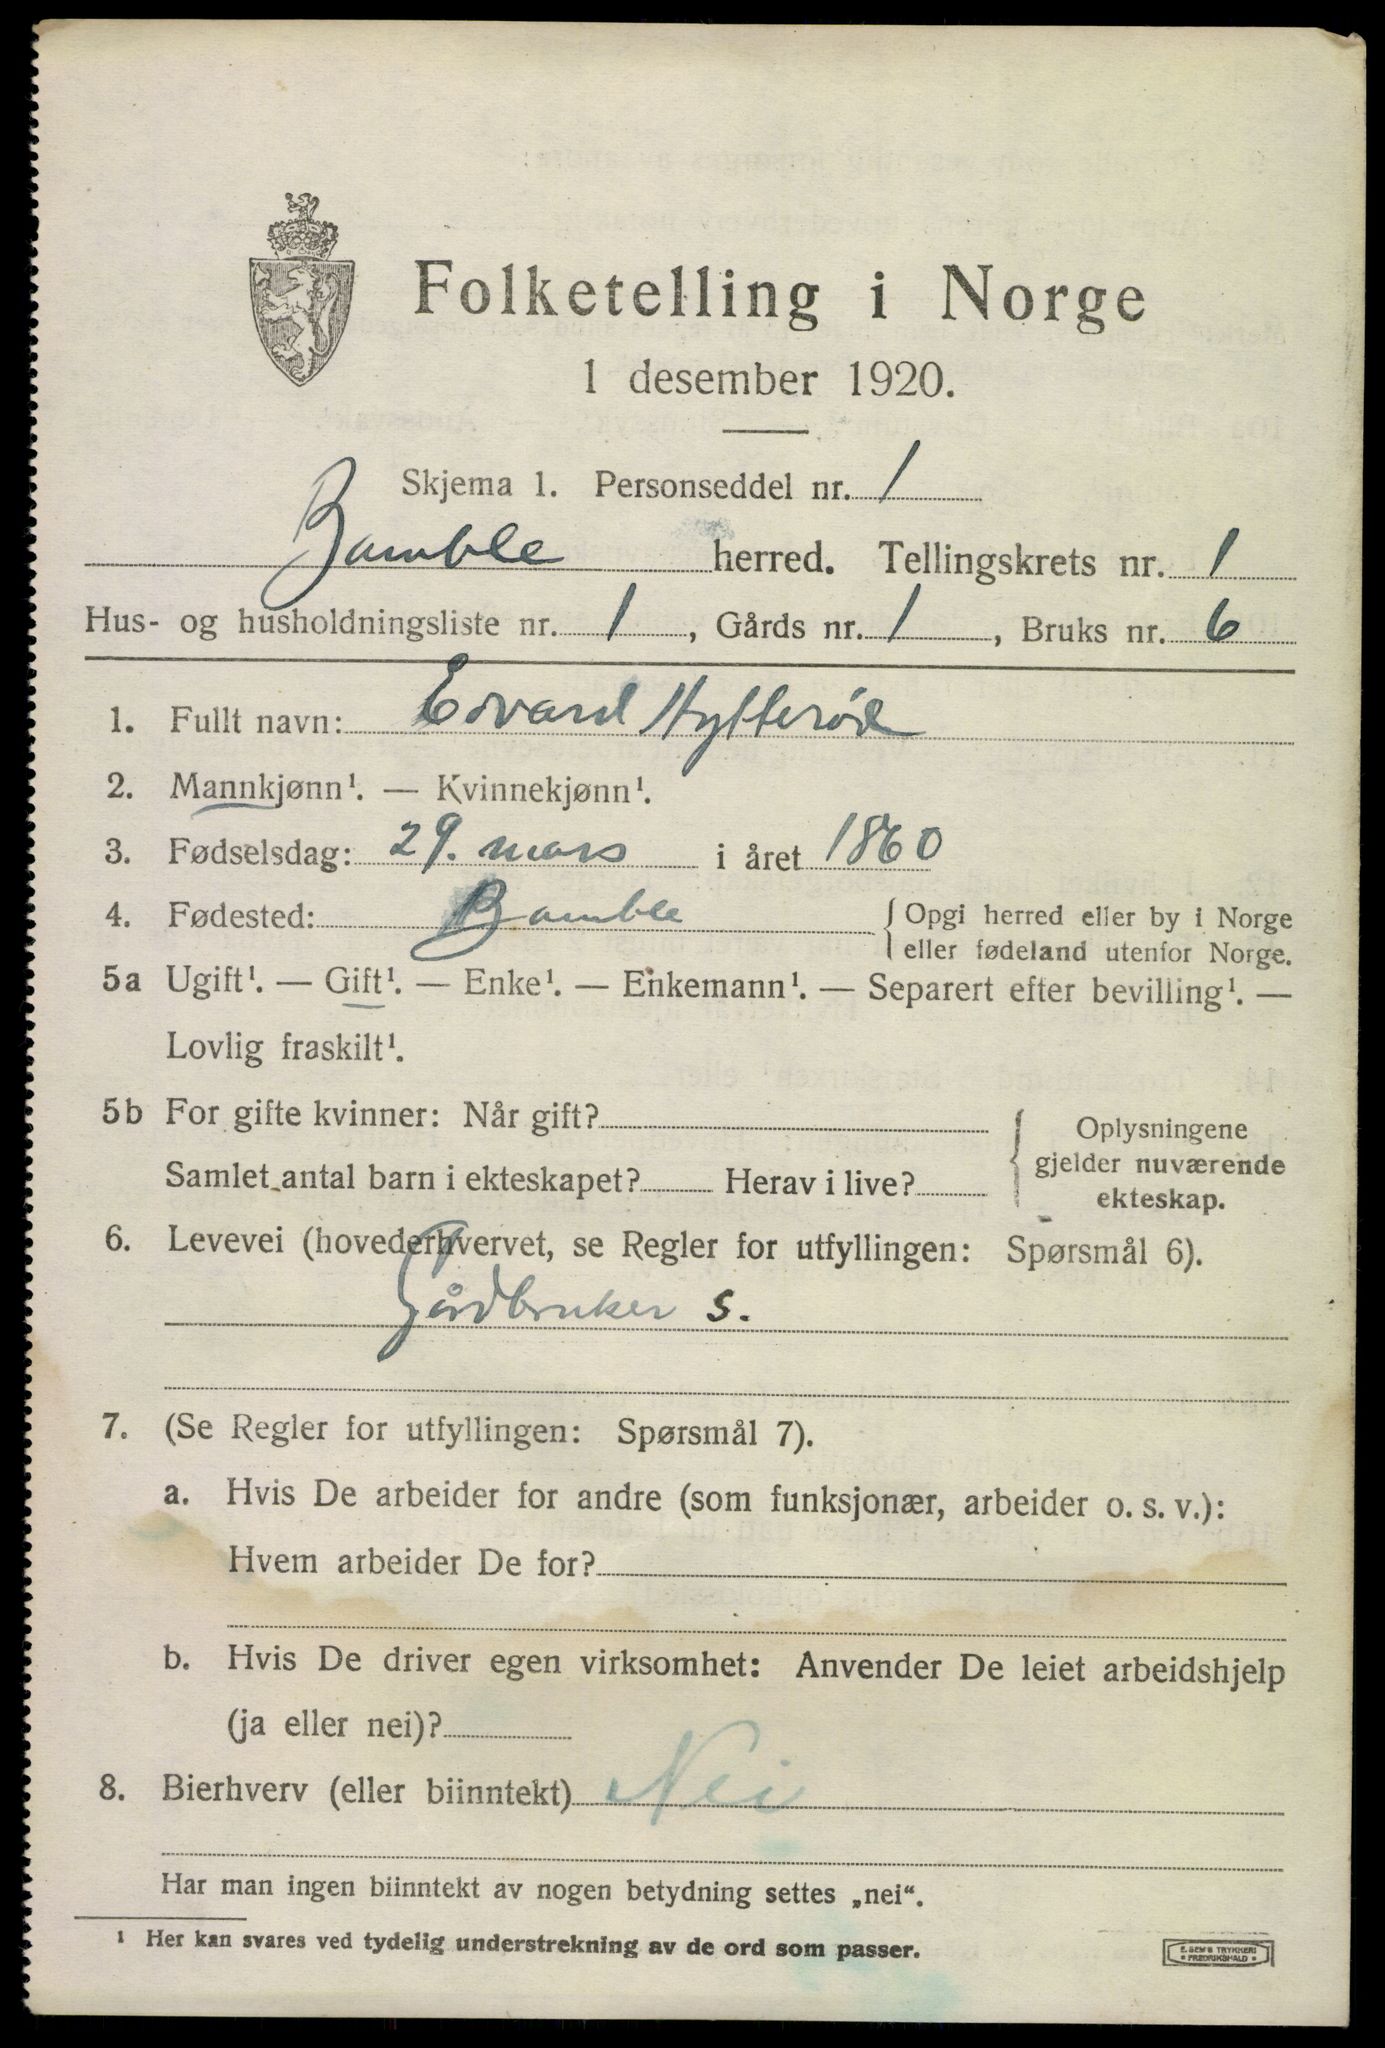 Folketelling i Norge
1 desember 1920.
Skjema 1. Personseddel nr. 1
Bamble herred. Tellingskrets nr. 1
Hus- og husholdningsliste nr. 1, Gårds nr. 1, Bruks nr. 6
1. Fullt navn: Edvard Hytterød
2. Mannkjønn¹. — Kvinnekjønn¹.
3. Fødselsdag: 29. mars i året 1860
4. Fødested: Bamble {Opgi herred eller by i Norge
eller fødeland utenfor Norge.
5a Ugift¹. — Gift¹. — Enke¹. — Enkemann¹. — Separert efter bevilling¹. —
Lovlig fraskilt¹.
5b For gifte kvinner: Når gift?
Samlet antal barn i ekteskapet? Herav i live?
{ Oplysningene
gjelder nuværende
ekteskap.
6. Levevei (hovederhvervet, se Regler for utfyllingen: Spørsmål 6).
Gårdbruker s.
7. (Se Regler for utfyllingen: Spørsmål 7).
a. Hvis De arbeider for andre (som funksjonær, arbeider o. s. v.):
Hvem arbeider De for?
b. Hvis De driver egen virksomhet: Anvender De leiet arbeidshjelp
(ja eller nei)?
8. Bierhverv (eller biinntekt) Nei
Har man ingen biinntekt av nogen betydning settes „nei“.
¹ Her kan svares ved tydelig understrekning av de ord som passer.
E. SEM'S TRYKKERI
• FREDRIKSHALD •